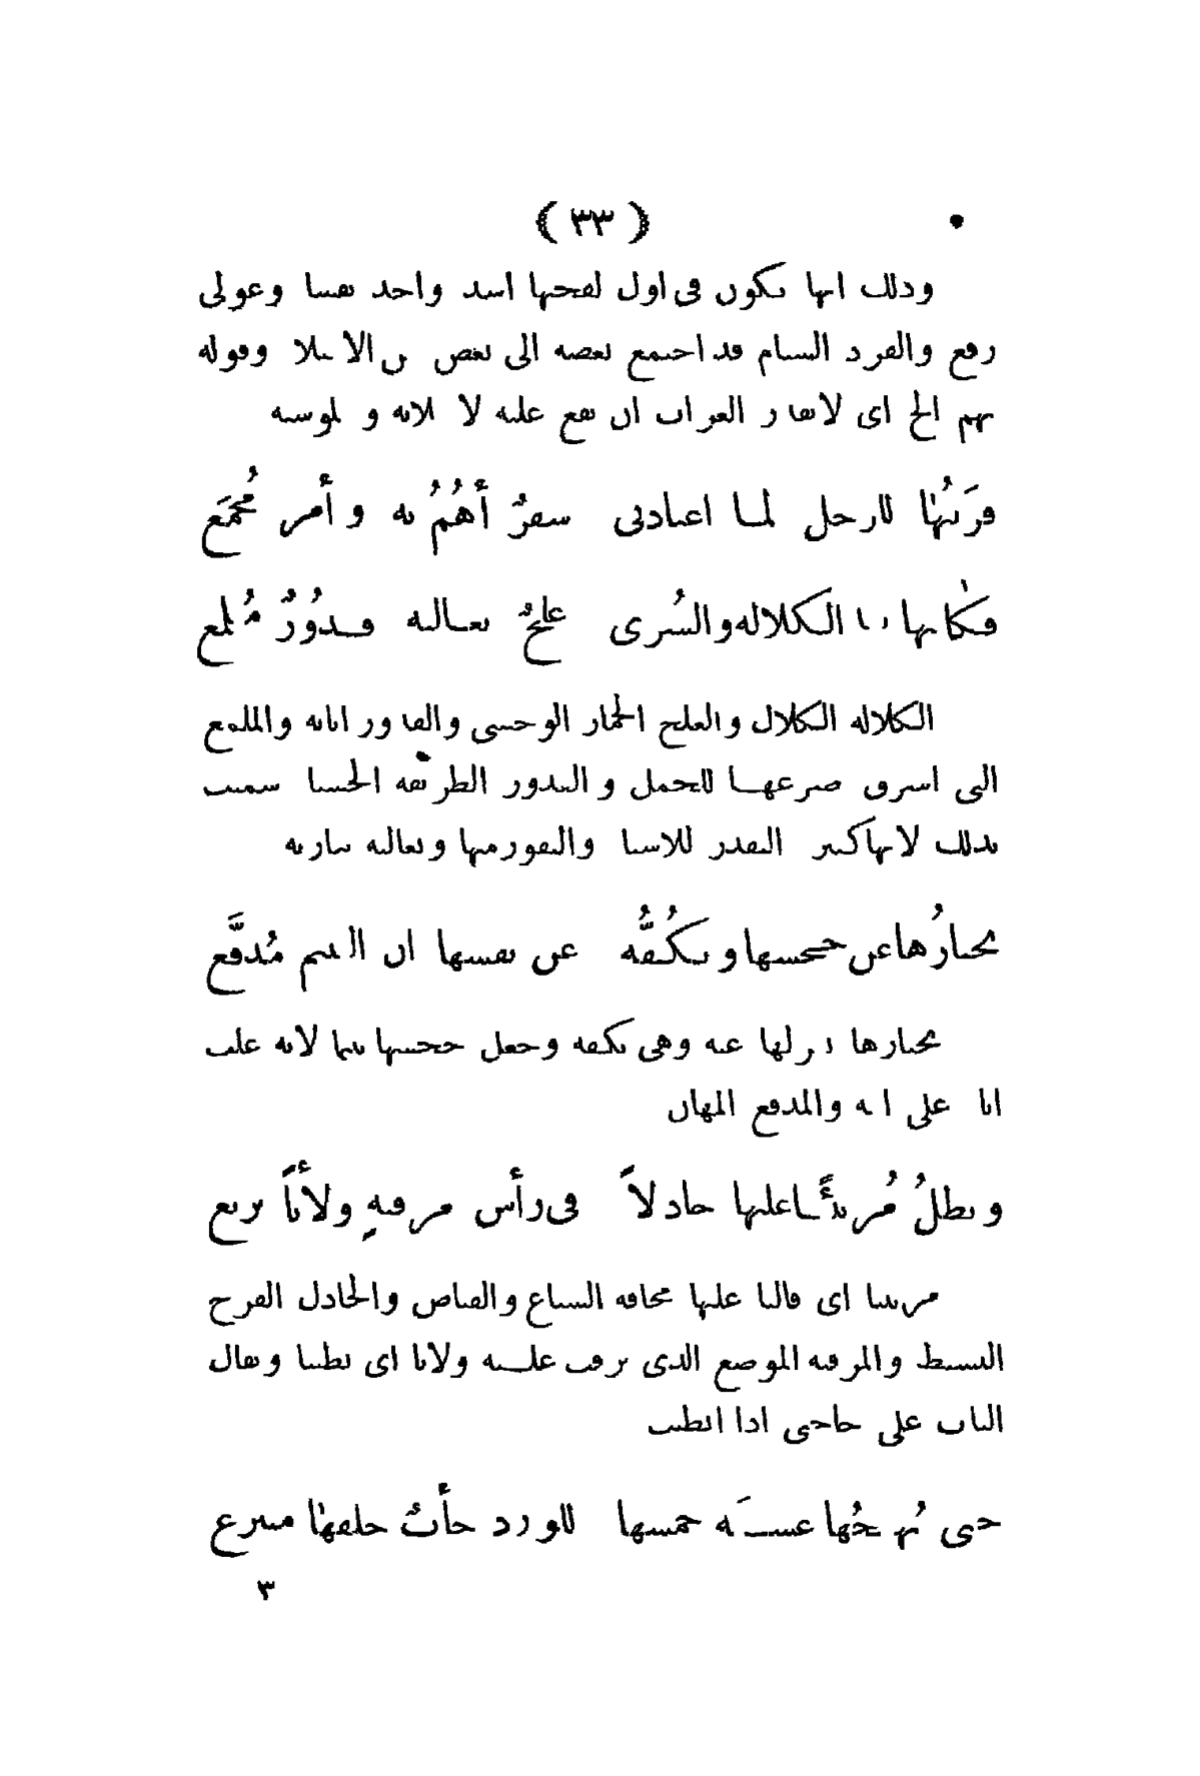 ( ٣٣ )
وذلك انها تكون فى اول لقحها اشد واحد نفسا وعولى
رفع والقرد السنام قد اجتمع بعضه الى بعض من الامتلاء وقوله
يهم الخ اى لا يقدر الغراب ان يقع عليه لا ملانه و ملوسته
قرَّبتُها للرحل لمـا اعتادنى سفرٌ أهُمُّ به وأمر مُجمَع
فكأنها بعد الكلاله والسُرى علجٌ تغـاليه قـذُورٌ مُلمع
الكلاله الكلال والعلج الحمار الوحشى والقذور اتانه والملمع
التى اشرق ضرعهـا للحمل و القذور الطريقه الخشنا سميت
بذلك لانها كثير التقذر للاشيا والنفور منها وتغاليه تباريه
يحتازُها عن جحشها وتكُفُّه عن نفسها ان اليتيم مُدفَّع
يحتازها يعزلها عنه وهى تكفه وجعل جحشها يتيما لانه غلب
اباه على امه والمدفع المهان
ويظلُ مُرتبئًـا عليها جاذلاً فى رأس مرقبهٍ ولأيًا يرتع
مرتبئا اى قالبا عليها مخافه السباع والقناص والجاذل الفرح
النشيط والمرقبه الموضع الذى يرقب عليـه ولايا اى بطيئا ويقال
التاث على حاجتى اذا ابطئت
حتى يُهيجُها عشيَّه خمسها للورد جأبٌ خلفها متترع
٣